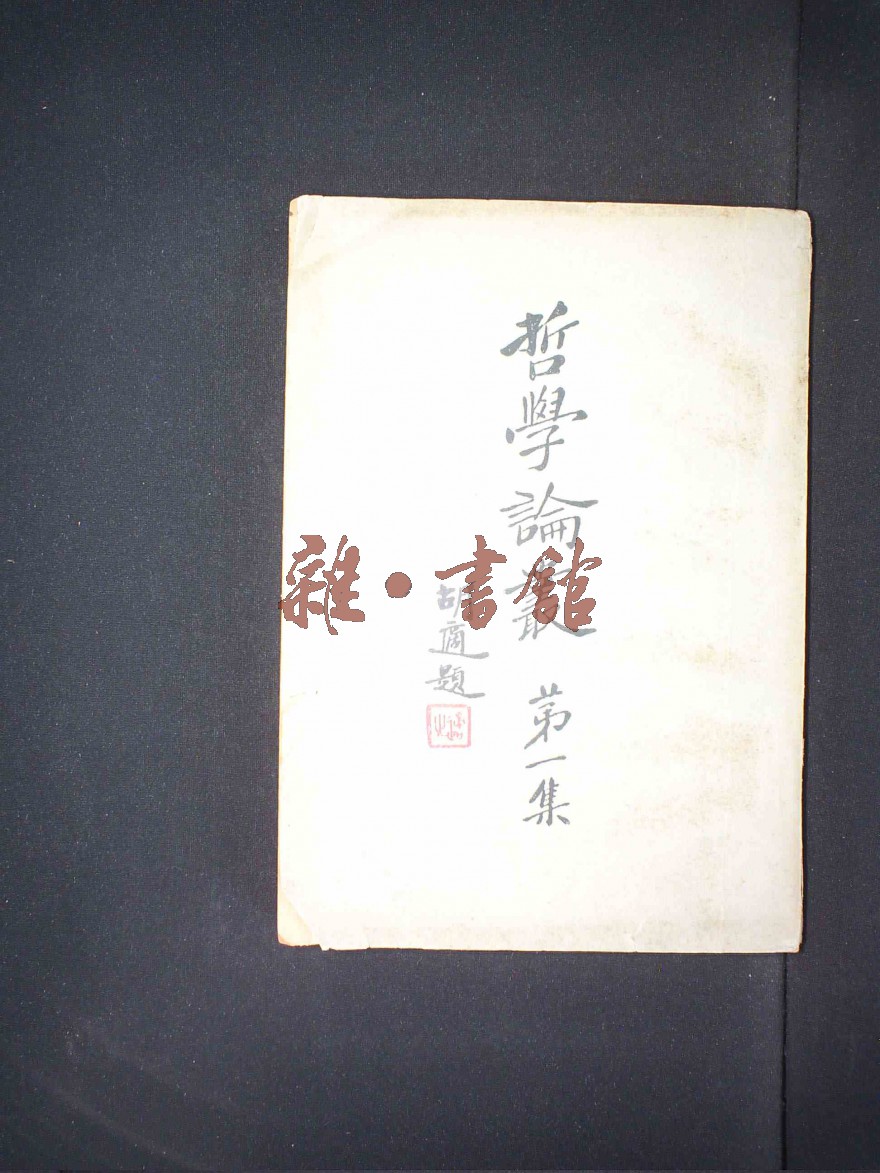 哲學論叢 第一集
胡適題
雜·書館